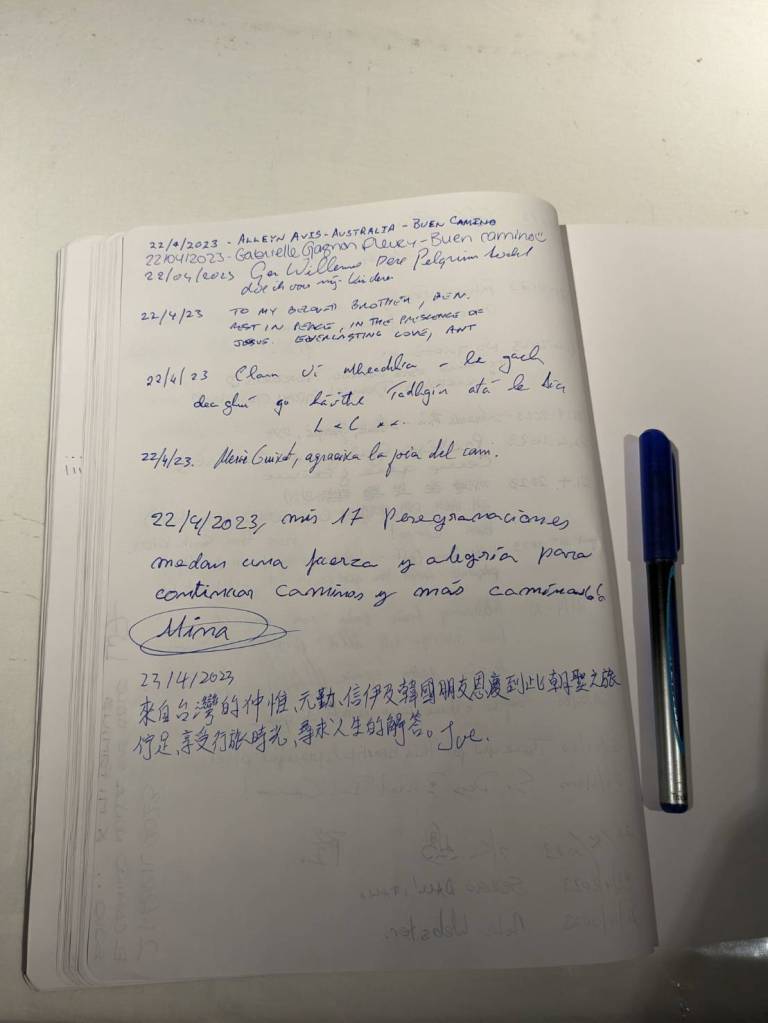 22/4/2023 - ALLEYN AVIS - AUSTRALIA - BUEN CAMINO
22/04/2023 - Gabrielle Gagnon - Buen camino
22/04/2023 Ger Willems Deze Pelgrims tocht
doe ik voor mijn kinderen
22/4/23 TO MY BELOVED BROTHER, BEN.
REST IN PEACE, IN THE PRESCENCE OF
JESUS. EVERLASTING LOVE, ANT
22/4/23 Clann Uí - le gach
dea ghuí go Tadhgín atá le Dia
22/4/23. Mercè Guixot, la joia del cam.
22/4/2023, mis 17 Peregranaciones
medan una fuerza y alegría para
continuar Caminos y más
Mina
23/4/2023
來自台灣的仲惟、元勤、信伊及韓國朋友恩慶到此朝聖之旅
停足、享受行旅時光、尋求人生的解答。Joe.